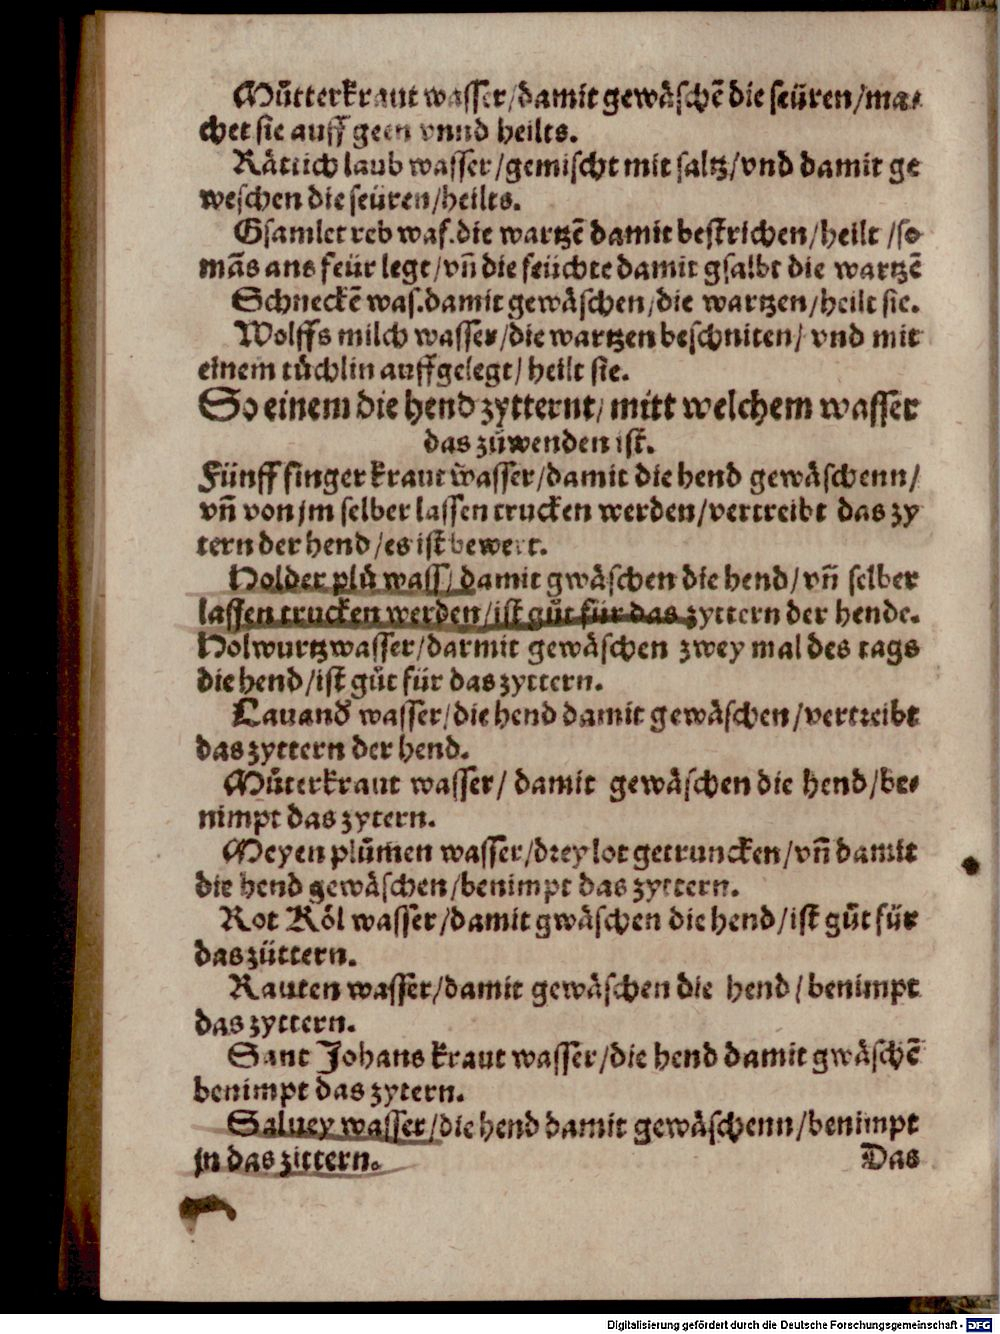 Můtterkraut wasser/damit gewäschē die seüren/ma⸗
chet sie auff geen vnnd heilts.
Rättich laub wasser/gemischt mit saltz/vnd damit ge
weschen die seüren/heilts.
Gsamlet reb was.die wartzē damit bestrichen/heilt/so
mās ans feür legt/vn̄ die feüchte damit gsalbt die wartzē
Schneckē was.damit gewäschen/die wartzen/heilt sie.
Wolffs milch wasser/die wartzen beschniten/vnd mit
einem tůchlin auffgelegt/heilt sie.
So einem die hend zytternt/mitt welchem wasser
das zůwenden ist.
Fünff finger kraut wasser/damit die hend gewäschenn/
vn̄ von jm selber lassen trucken werden/vertreibt das zy
tern der hend/es ist bewert.
Holder plů wass/damit gwäschen die hend/vn̄ selber
lassen trucken werden/ist gůt für das zyttern der hende.
Holwurtz wasser/darmit gewäschen zwey mal des tags
die hend/ist gůt für das zyttern.
Lauand wasser/die hend damit gewäschen/vertreibt
das zyttern der hend.
Můterkraut wasser/damit gewäschen die hend/be⸗
nimpt das zytern.
Meyen plůmen wasser/drey lot getruncken/vn̄ damit
die hend gewäschen/benimpt das zyttern.
Rot Köl wasser/damit gwäschen die hend/ist gůt für
das züttern.
Rauten wasser/damit gewäschen die hend/benimpt
das zyttern.
Sant Johans kraut wasser/die hend damit gwäschē
benimpt das zytern.
Saluey wasser/die hend damit gewäschenn/benimpt
jn das zittern. Das
Digitalisierung gefördert durch die Deutsche Forschungsgemeinschaft - DFG